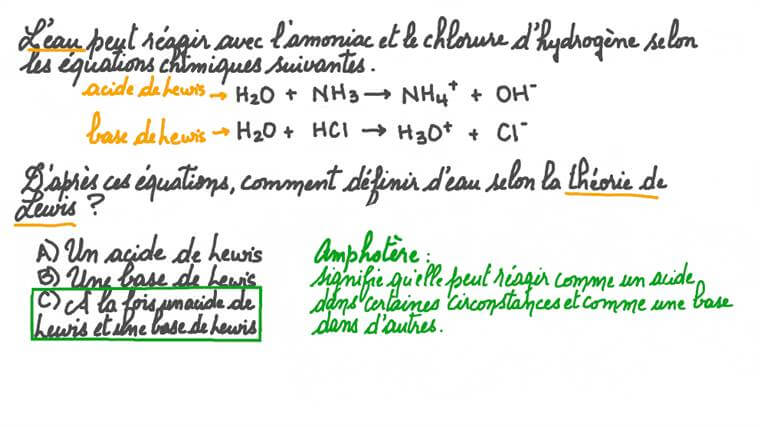 L'eau peut réagir avec l'amoniac et le chlorure d'hydrogène selon
les équations chimiques suivantes.
acide de Lewis → H₂O + NH₃ → NH₄⁺ + OH⁻
base de Lewis → H₂O + HCl → H₃O⁺ + Cl⁻
D'après ces équations, comment définir d'eau selon la théorie de
Lewis ?
A) Un acide de Lewis
B) Une base de Lewis
C) A la fois un acide de
Lewis et une base de Lewis
Amphotère :
signifie qu'elle peut réagir comme un acide
dans certaines circonstances et comme une base
dans d'autres.